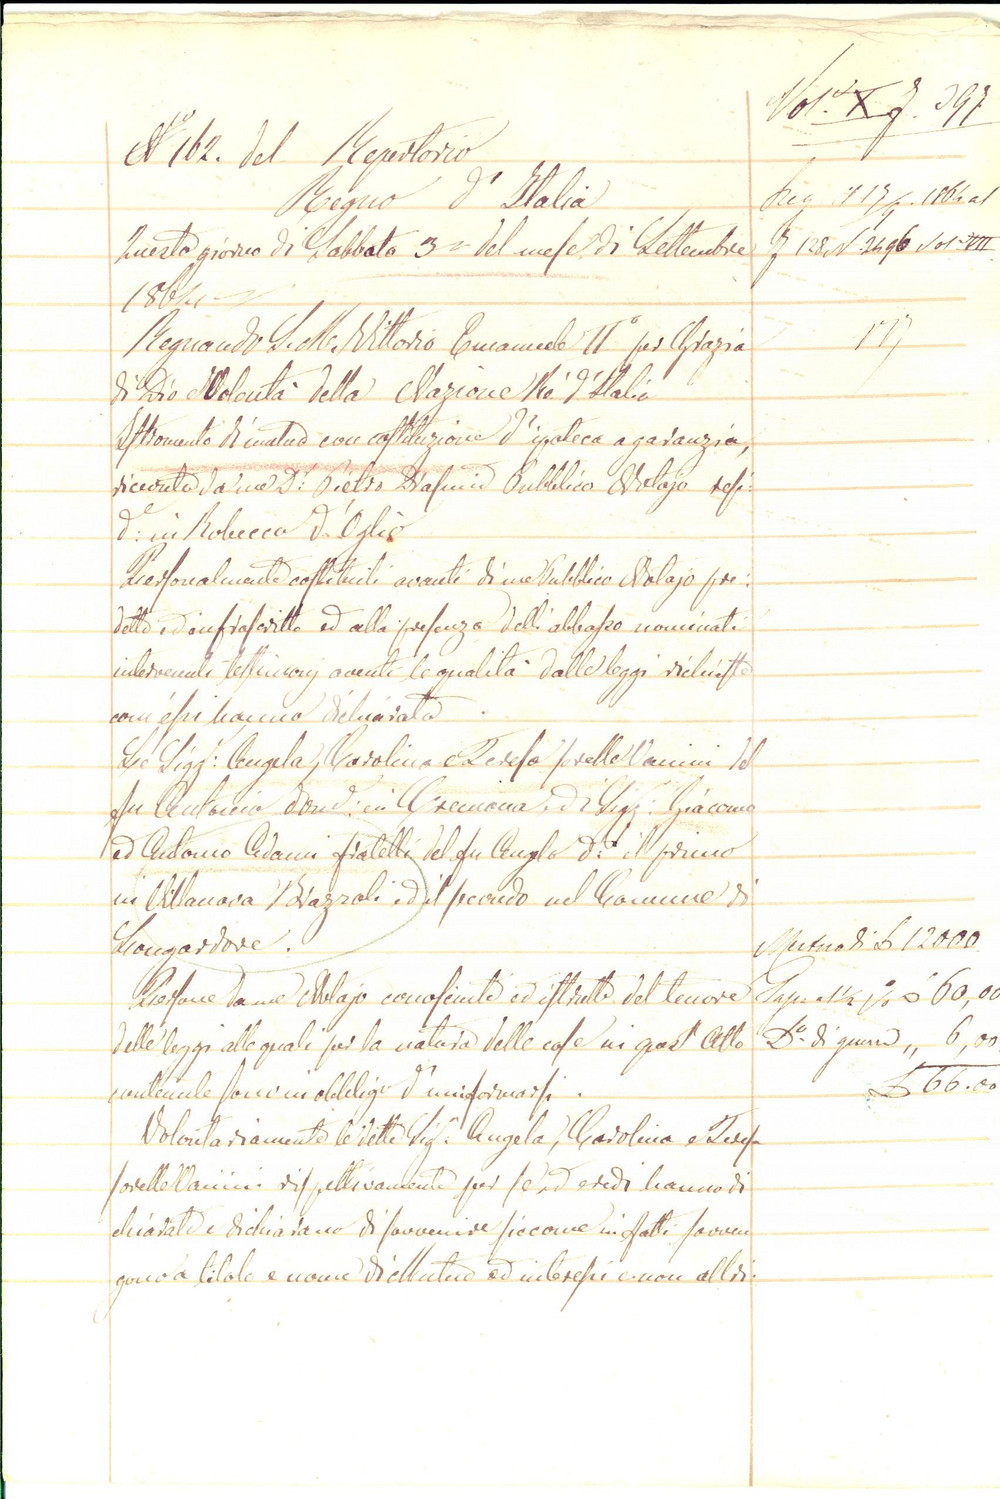 Vol. X f. 397
N.° 162. del Repertorio
Regno d' Italia
Questo giorno di Sabbato 3 = del mese di Settembre
1864
Regnando S. M. Vittorio Emanuele II° per Grazia
di Dio e Volontà della Nazione Rè d' Italia
Istromento di mutuo con costituzione d' ipoteca a garanzia,
ricevuto da me D.r Pietro Pubblico Notajo resi:
d.e in Robecco d' Oglio
Personalmente costituiti avanti di me Pubblico Notajo pre:
detto ed infrascritto ed alla presenza delli abbasso nominati
intervenuti testimonj aventi le qualità dalle leggi richieste
com' essi hanno dichiarato.
Le Sigg.e Angela, Carolina e Teresa sorelle Vanini del
fu Antonio dom.e in Cremona, ed i Sigg.i Giacomo
ed Antonio Adami fratelli del fu Angelo d.t il primo
in Villanova ed il secondo nel Comune di
Longardore.
Persone da me Notajo conosciute ed istrutte del tenore
delle leggi alle quali per la natura delle cose in quest' Atto
contenute sono in obbligo d' uniformarsi.
Volontariamente le dette Sig.e Angela, Carolina e Teresa
sorelle Vanini rispettivamente per se, ed eredi hanno di
chiarato e dichiarano di sovvenire siccome in fatti sovven
gono a titolo e nome di Mutuo ed interessi e non altri:
1864 al
f 128 N 2496 Vol. VII
177
Mutuo di £ 12000
Tassa al ½ p% £ 60,00
D.° di guerra „ 6,00
£ 66.00